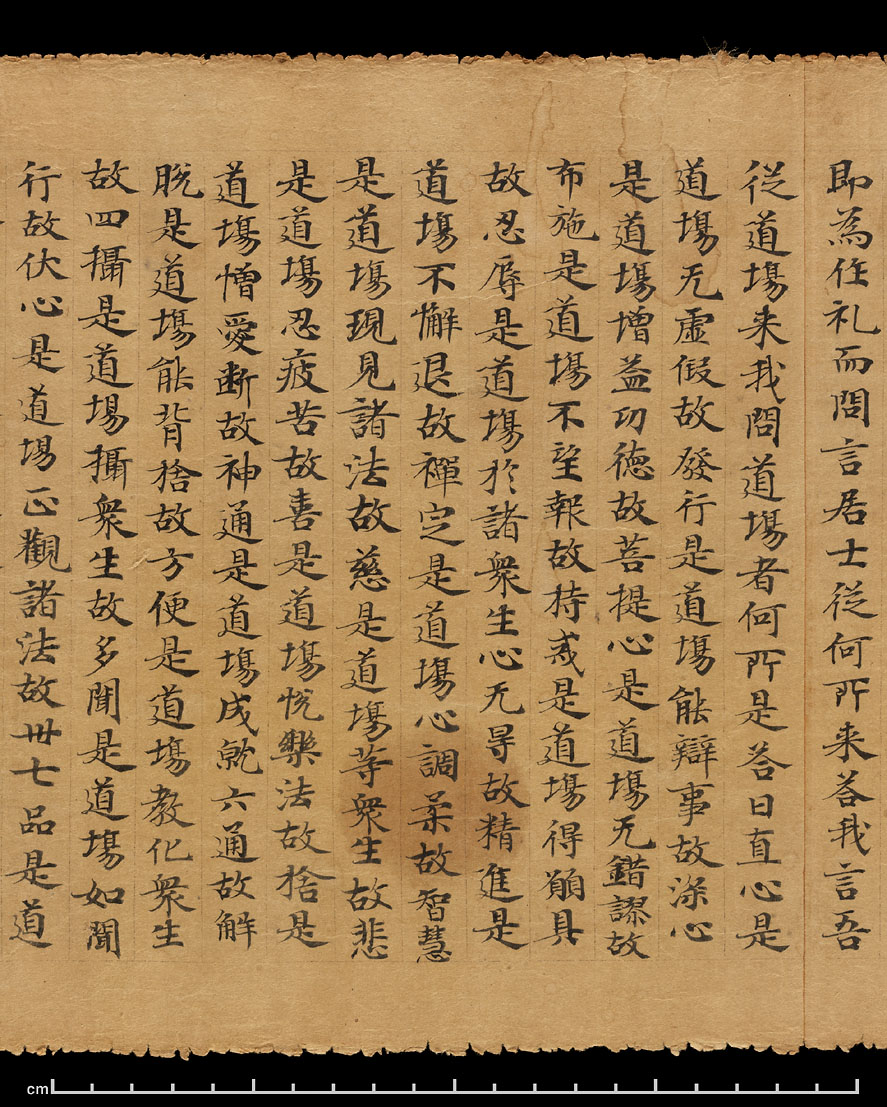 即為作礼而問言居士從何所来荅我言吾
從道場来我問道場者何所是荅曰直心是
道場无虛假故發行是道場能辯事故深心
是道場增益功德故菩提心是道場无錯謬故
布施是道場不望報故持戒是道場得願具
故忍辱是道場於諸衆生心无㝵故精進是
道場不懈退故禪定是道場心調柔故智慧
是道場現見諸法故慈是道場等衆生故悲
是道場忍疲苦故喜是道場悅樂法故捨是
道場憎愛断故神通是道場成就六通故解
脫是道場能背捨故方便是道場教化衆生
故四攝是道場攝衆生故多聞是道場如聞
行故伏心是道場正觀諸法故卅七品是道
cm